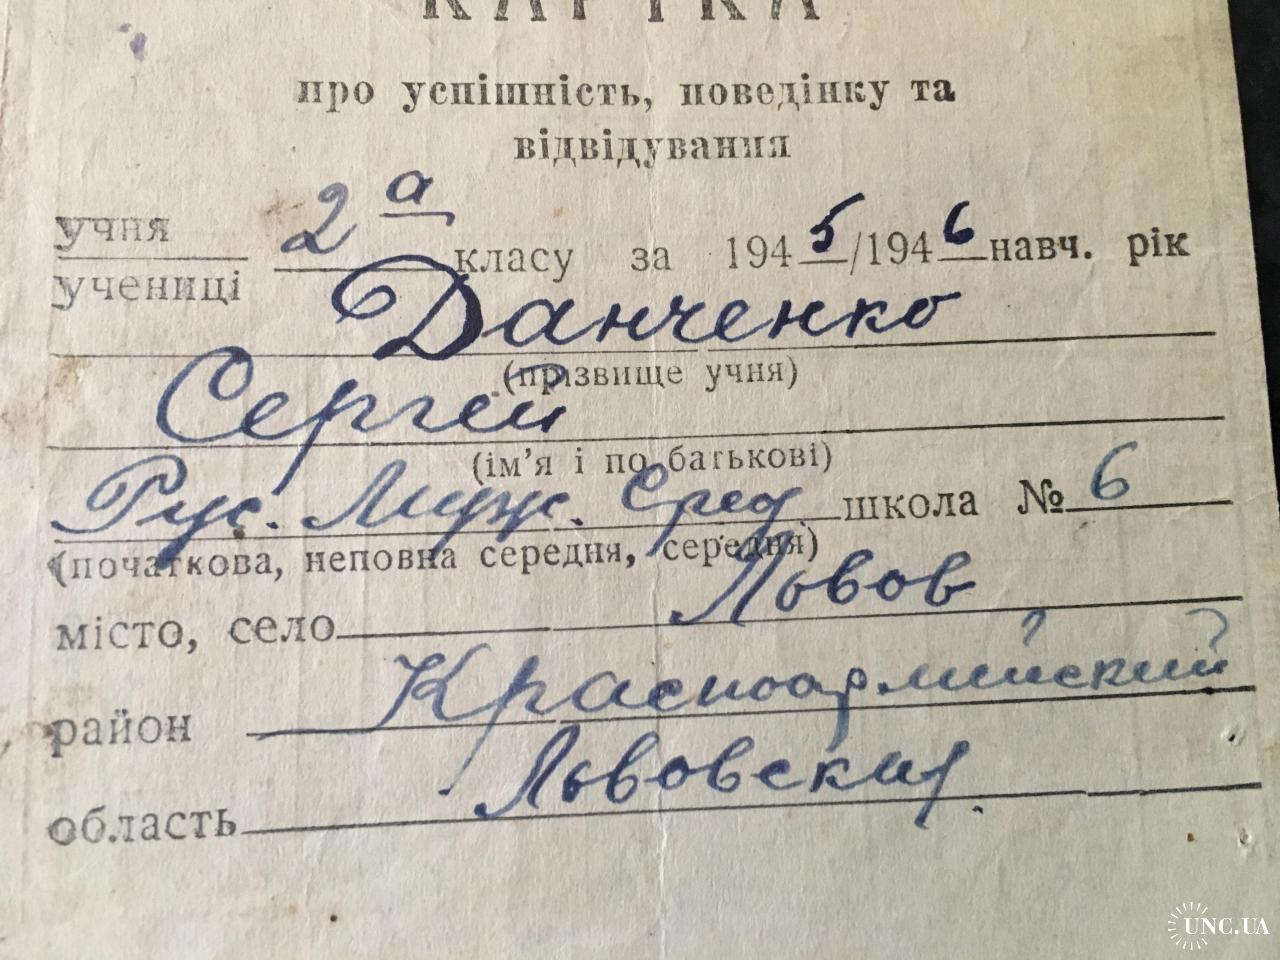 КАРТКА
про успішність, поведінку та
відвідування
учня
учениці 2а класу за 1945/1946 навч. рік
Данченко
(прізвище учня)
Сергей
(ім'я і по батькові)
Рус. Муж. Сред школа № 6
(початкова, неповна середня, середня)
місто, село Львов
район Красноармийский
область Львовская
UNC.UA